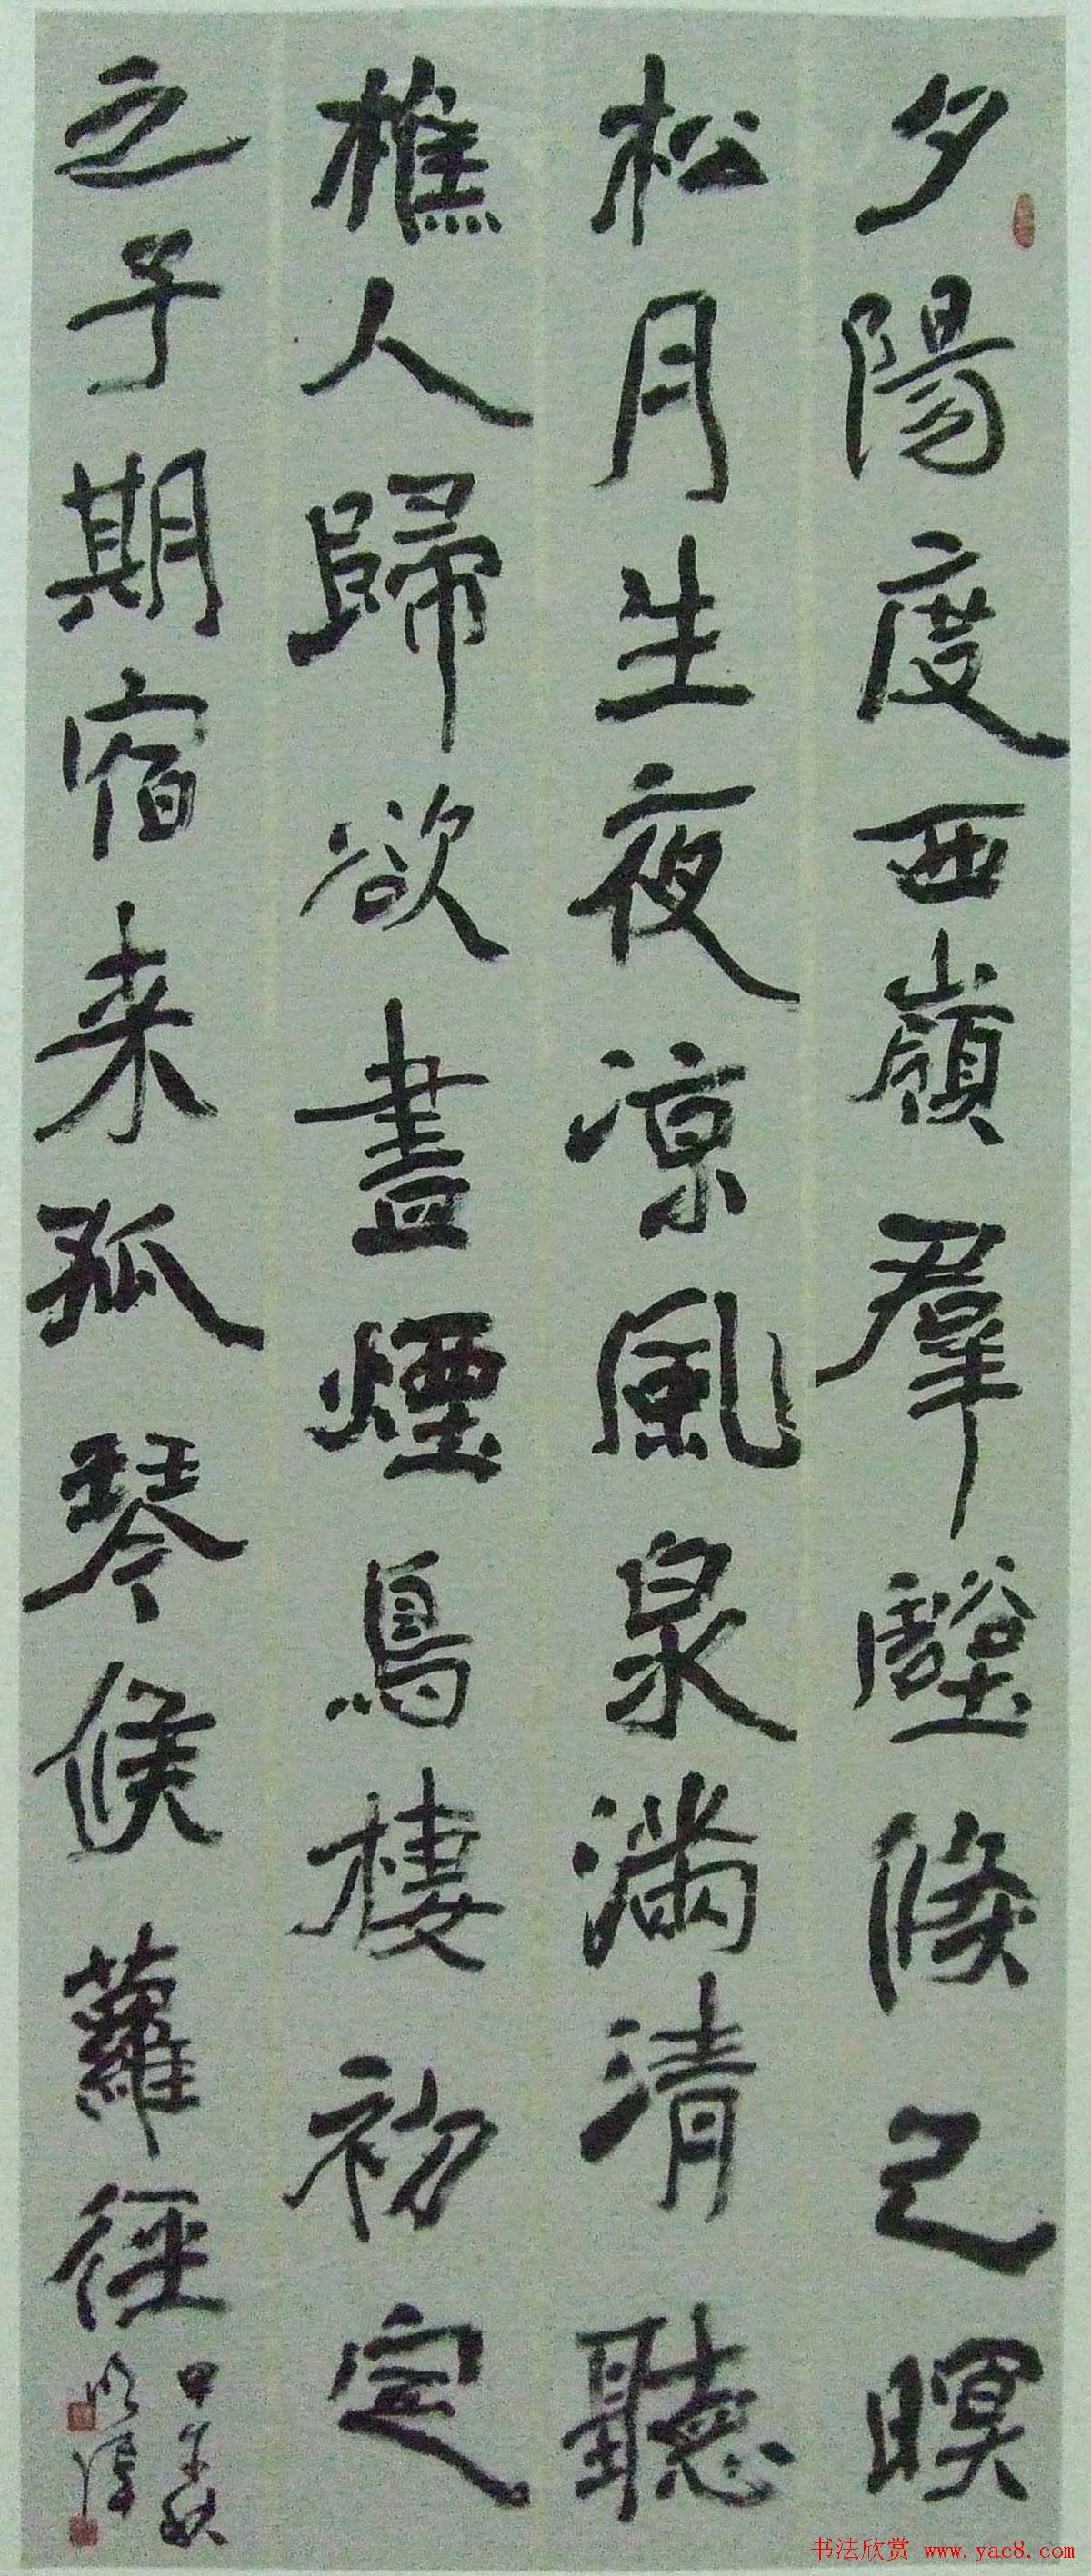 夕陽度西嶺羣壑倏已暝
松月生夜凉風泉滿清聽
樵人歸欲盡煙鳥棲初定
之子期宿来孤琴候蘿徑
甲午秋
书法欣赏 www.yac8.com